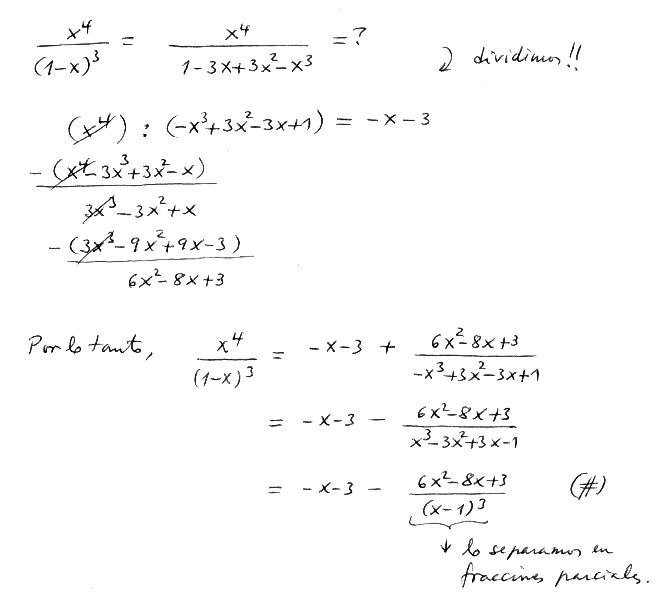 x⁴/(1-x)³ = x⁴/(1-3x+3x²-x³) = ? ↓ dividimos!!
(x⁴) : (-x³+3x²-3x+1) = -x-3
- (x⁴-3x³+3x²-x)
3x³-3x²+x
- (3x³-9x²+9x-3)
6x²-8x+3
Por lo tanto, x⁴/(1-x)³ = -x-3 + (6x²-8x+3)/(-x³+3x²-3x+1)
= -x-3 - (6x²-8x+3)/(x³-3x²+3x-1)
= -x-3 - (6x²-8x+3)/(x-1)³ (#)
↓ lo separamos en
fracciones parciales.